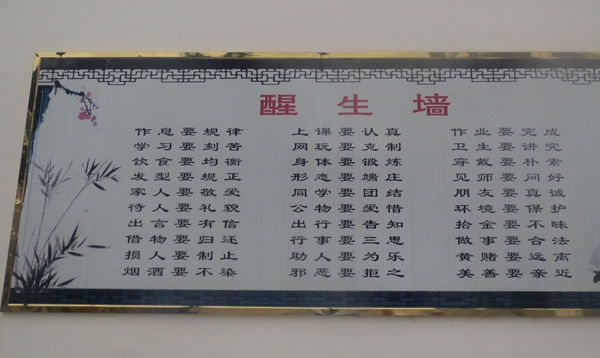 醒生墙
作息要规律 上课要认真 作业要完成
学习要刻苦 网玩要克制 卫生要讲究
饮食要均衡 身体要锻炼 穿戴要朴素
发型要规正 形态要端庄 见师要问好
家人要敬爱 同学要团结 朋友要真诚
待人要礼貌 公物要爱惜 环境要保护
出言要有信 出行要告知 拾金要不昧
借物要归还 行事要三思 做事要合法
损人要制止 助人要为乐 黄赌要远离
烟酒要不染 邪恶要拒之 美善要亲近